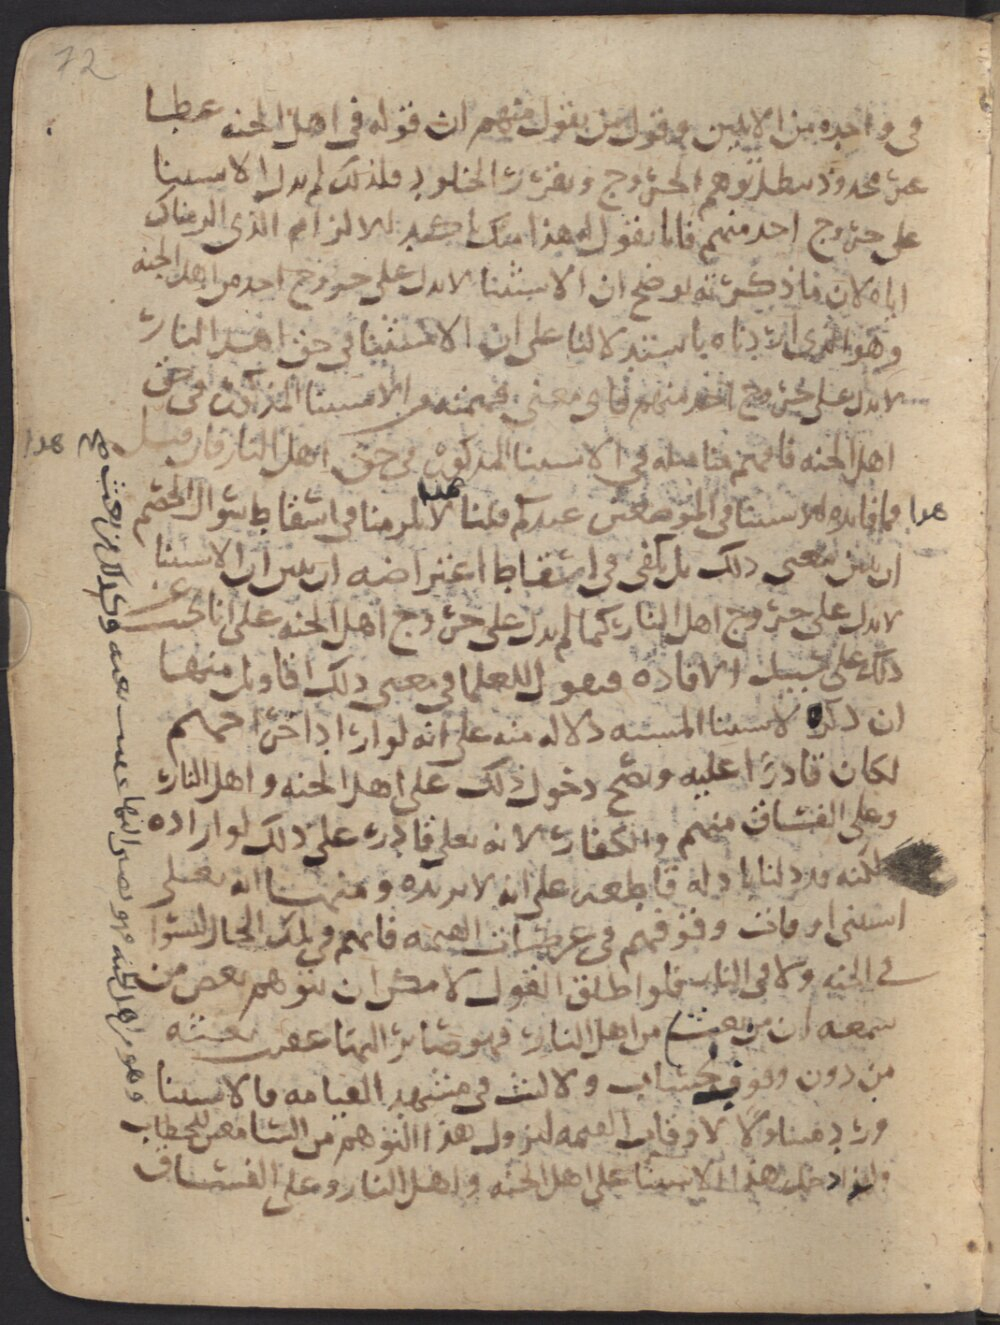 72
في واحده من الايتين وقول من يقول منهم ان قوله في اهل الجنه عطا
غير مجذوذ يبطل توهم الخروج ويقرر الخلود فلذلك لم يدل الاستثنا
على خروج احد منهم فانا نقول له هذا منك تاكيد للالزام الذي الزمناك
اياه لان ما ذكرته يوضح ان الاستثنا لا يدل على خروج احد من اهل الجنه
وهو الذي اردناه باستدلالنا على ان الاستثنا في حق اهل النار
لا يدل على خروج احد منهم فاي معنى فهمته من الاستثنا المذكور في حق
اهل الجنه فافهم مثله في الاستثنا المذكور في حق اهل النار فان قيل
فما فايده الاستثنا في الموضعين عندكم قلنا لا يلزمنا في اسقاط سوال الخصم
ان نبين معنى ذلك بل يكفي في اسقاط اعتراضه ان نبين ان الاستثنا
لا يدل على خروج اهل النار كما لم يدل على خروج اهل الجنه على انا نجيب عن
ذلك على سبيل الافاده فنقول للعلما في معنى ذلك اقاويل منها
ان ذكر الاستثنا للمشيه دلاله منه على انه لو اراد اخراجهم
لكان قادرا عليه ويصح دخول ذلك على اهل الجنه واهل النار
وعلى الفساق منهم والكفار لانه تعالى قادر على ذلك لو اراده
لكنه قد دلنا بادله قاطعه على انه لا يريده ومنها انه تعالى
استثنى اوقات وقوفهم في عرصات القيمه فانهم في تلك الحال ليسوا
في الجنه ولا في النار فلو اطلق القول لامكن ان يتوهم بعض من
سمعه ان من بعث من اهل النار فهو صائر اليها عقيب بعثته
من دون وقوف لحساب ولا لبث في مشهد القيامه فالاستثنا
ورد متناولا لاوقات القيمه ليزول هذا التوهم من السامعين للخطاب
واذا دخل هذا الاستثنا على اهل الجنه واهل النار وعلى الفساق
هذا
عندنا